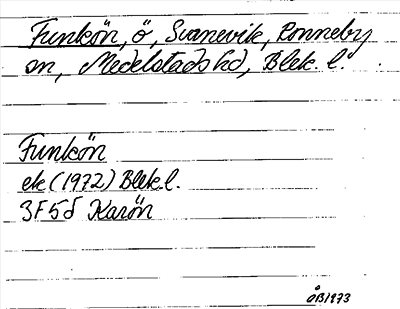 Funkön, ö, Svanevik, Ronneby
sn, Medelstads hd, Blek. l.
Funkön
ek (1972) Blek. l.
3F5d Karön
ÖB/1973